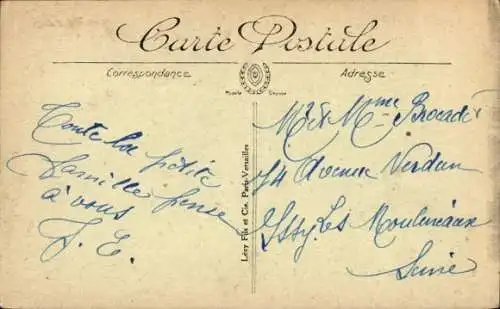 Carte Postale
Correspondance
Adresse
Toute la petite
famille pense
à vous
J. E.
Lévy Fils et Cie, Paris-Versailles
Mr et Mme Brocadet
74 Avenue Verdun
Issy Les Moulineaux
Seine